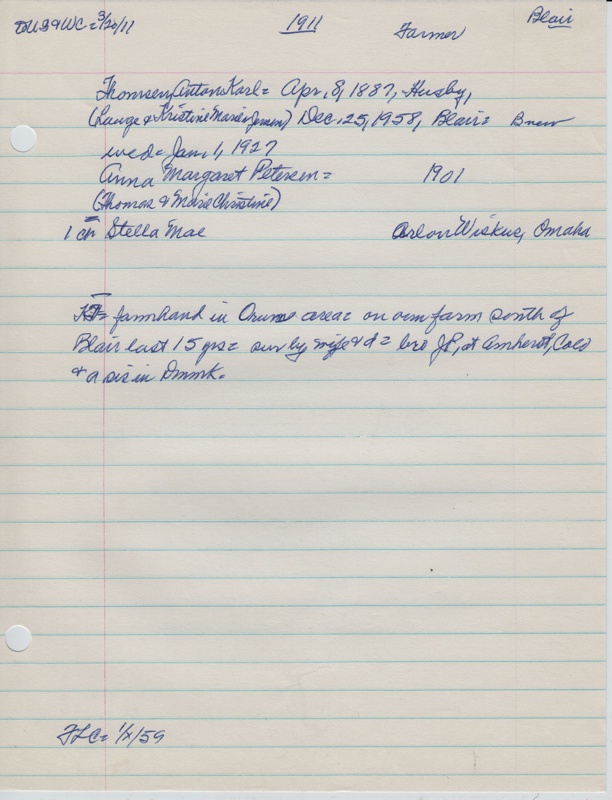 DUS&WC = 3/20/11 1911 Farmer Blair
Thomsen, Anton Karl = Apr, 8, 1887, Husby,
(Lauge & Kristine Marie Jensen) Dec. 25, 1958, Blair = B new
wed = Jan, 1, 1927
Anna Margaret Petersen = 1901
(Thomas & Marie Christine)
1 ch Stella Mae Arlon Wiskus, Omaha
= farmhand in Orum area = on own farm south of
Blair last 15 yrs = sur by wife & d = bro J.P, at Amherst, Colo
& a sis in Dnmk.
FLC = 1/x/59